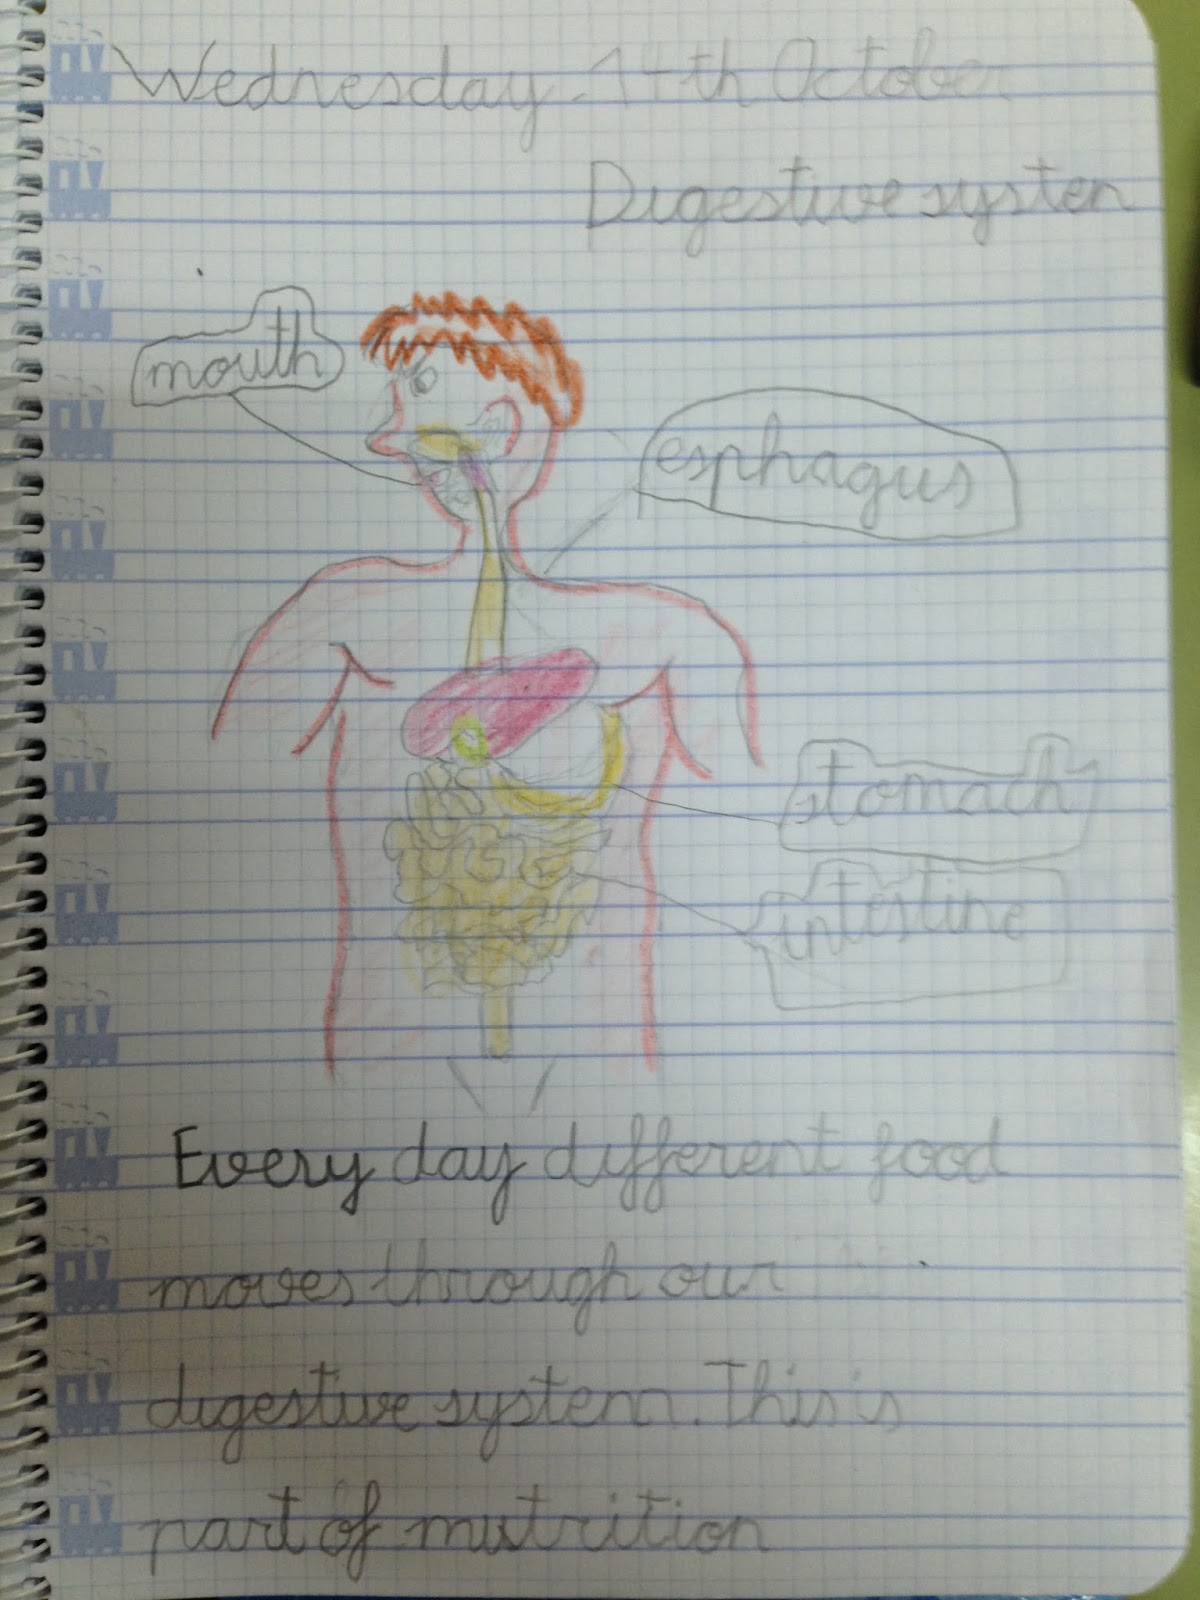 Wednesday 14th October
Digestive systen
mouth
esphagus
stomach
intestine
Every day different food
moves through our
digestive system. This is
part of mutrition